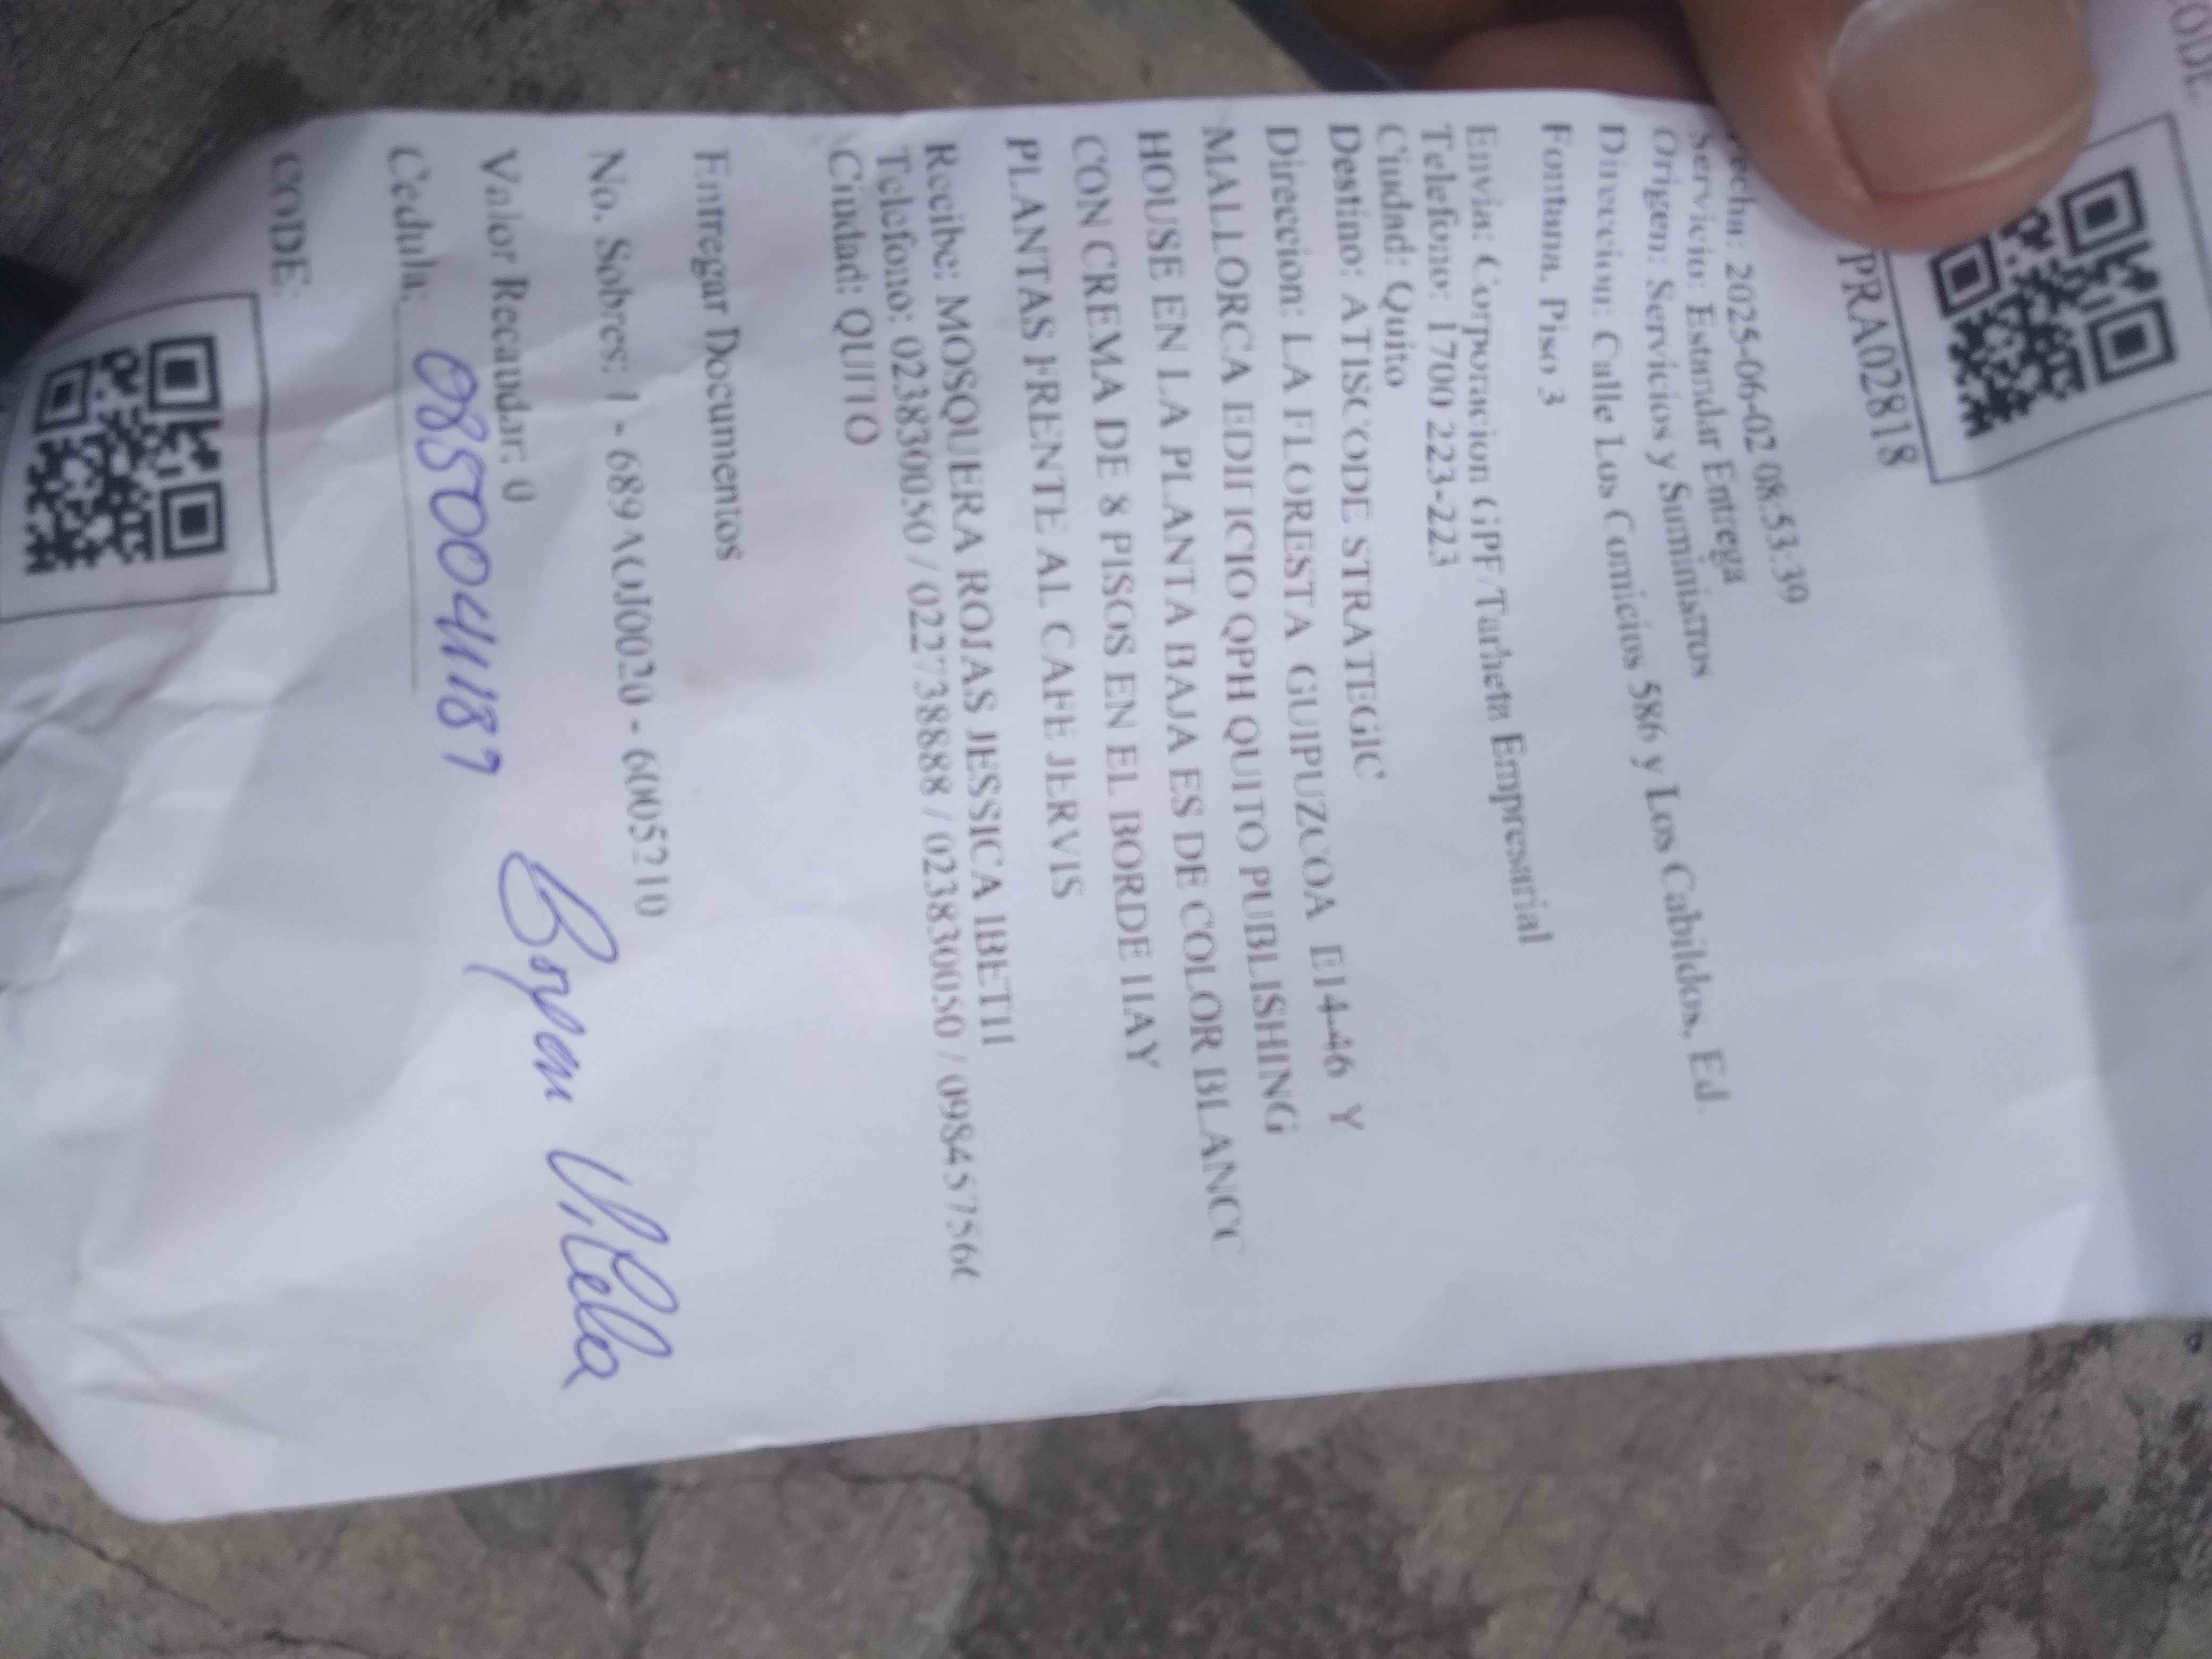 PRA02818
Fecha: 2025-06-02 08:53:39
Servicio: Estandar Entrega
Origen: Servicios y Suministros
Direccion: Calle Los Comicios 586 y Los Cabildos, Ed.
Fontana, Piso 3
Envia: Corporacion GPF/Tarjeta Empresarial
Telefono: 1700 223-223
Ciudad: Quito
Destino: ATISCODE STRATEGIC
Direccion: LA FLORESTA GUIPUZCOA E14-46 Y
MALLORCA EDIFICIO QPH QUITO PUBLISHING
HOUSE EN LA PLANTA BAJA ES DE COLOR BLANCO
CON CREMA DE 8 PISOS EN EL BORDE HAY
PLANTAS FRENTE AL CAFE JERVIS
Recibe: MOSQUERA ROJAS JESSICA IBETH
Telefono: 023830050 / 022738888 / 023830050 / 098457566
Ciudad: QUITO
Entregar Documentos
No. Sobres: 1 - 689AOJ0020 - 6005210
Valor Recaudar: 0
Cedula: 0850041187
CODE: